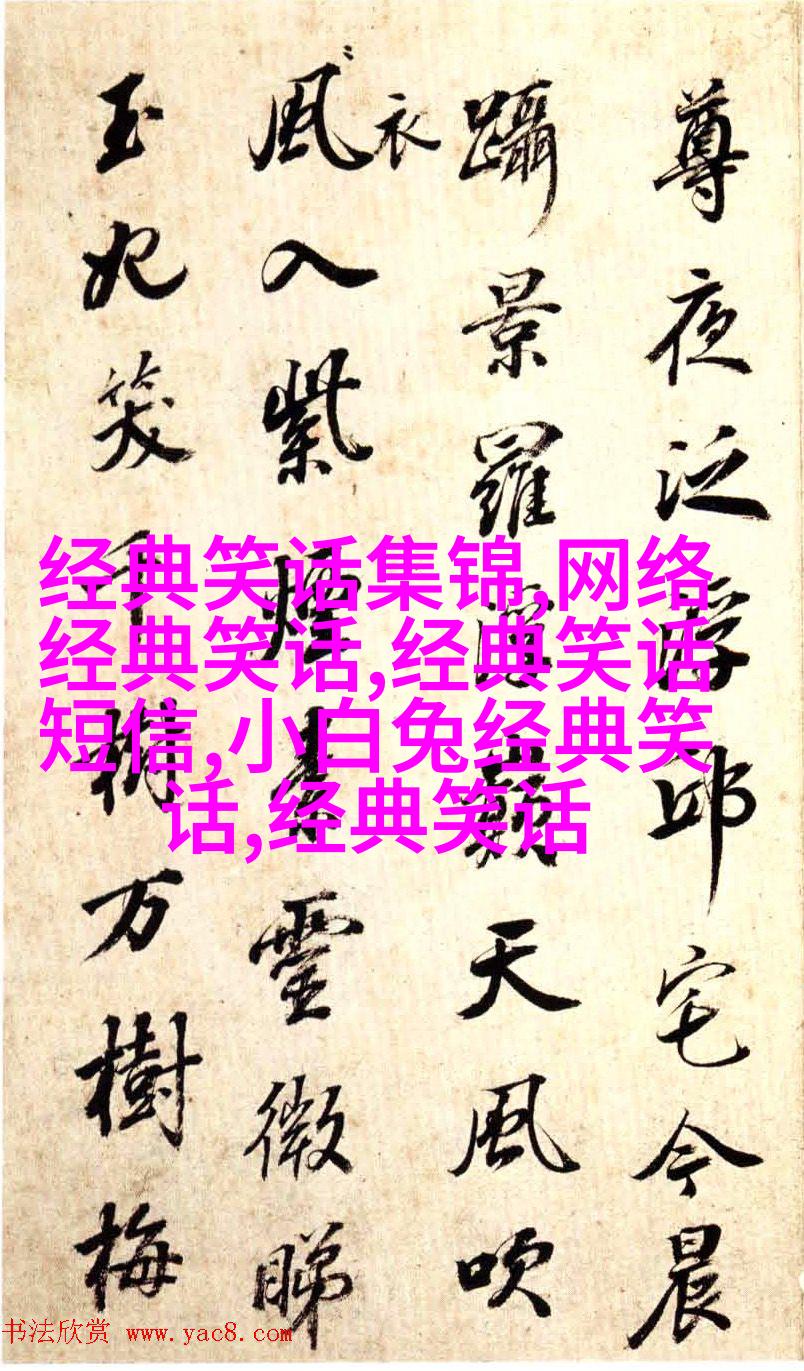 尊夜泛浮邱宅今晨
躡景羅浮巔天風吹
衣
風入紫煙素靈微睇
玉妃笑千万樹梅
经典笑话集锦,网络
经典笑话,经典笑话
短信,小白兔经典笑
话,经典笑话
书法欣赏 www.yac8.com